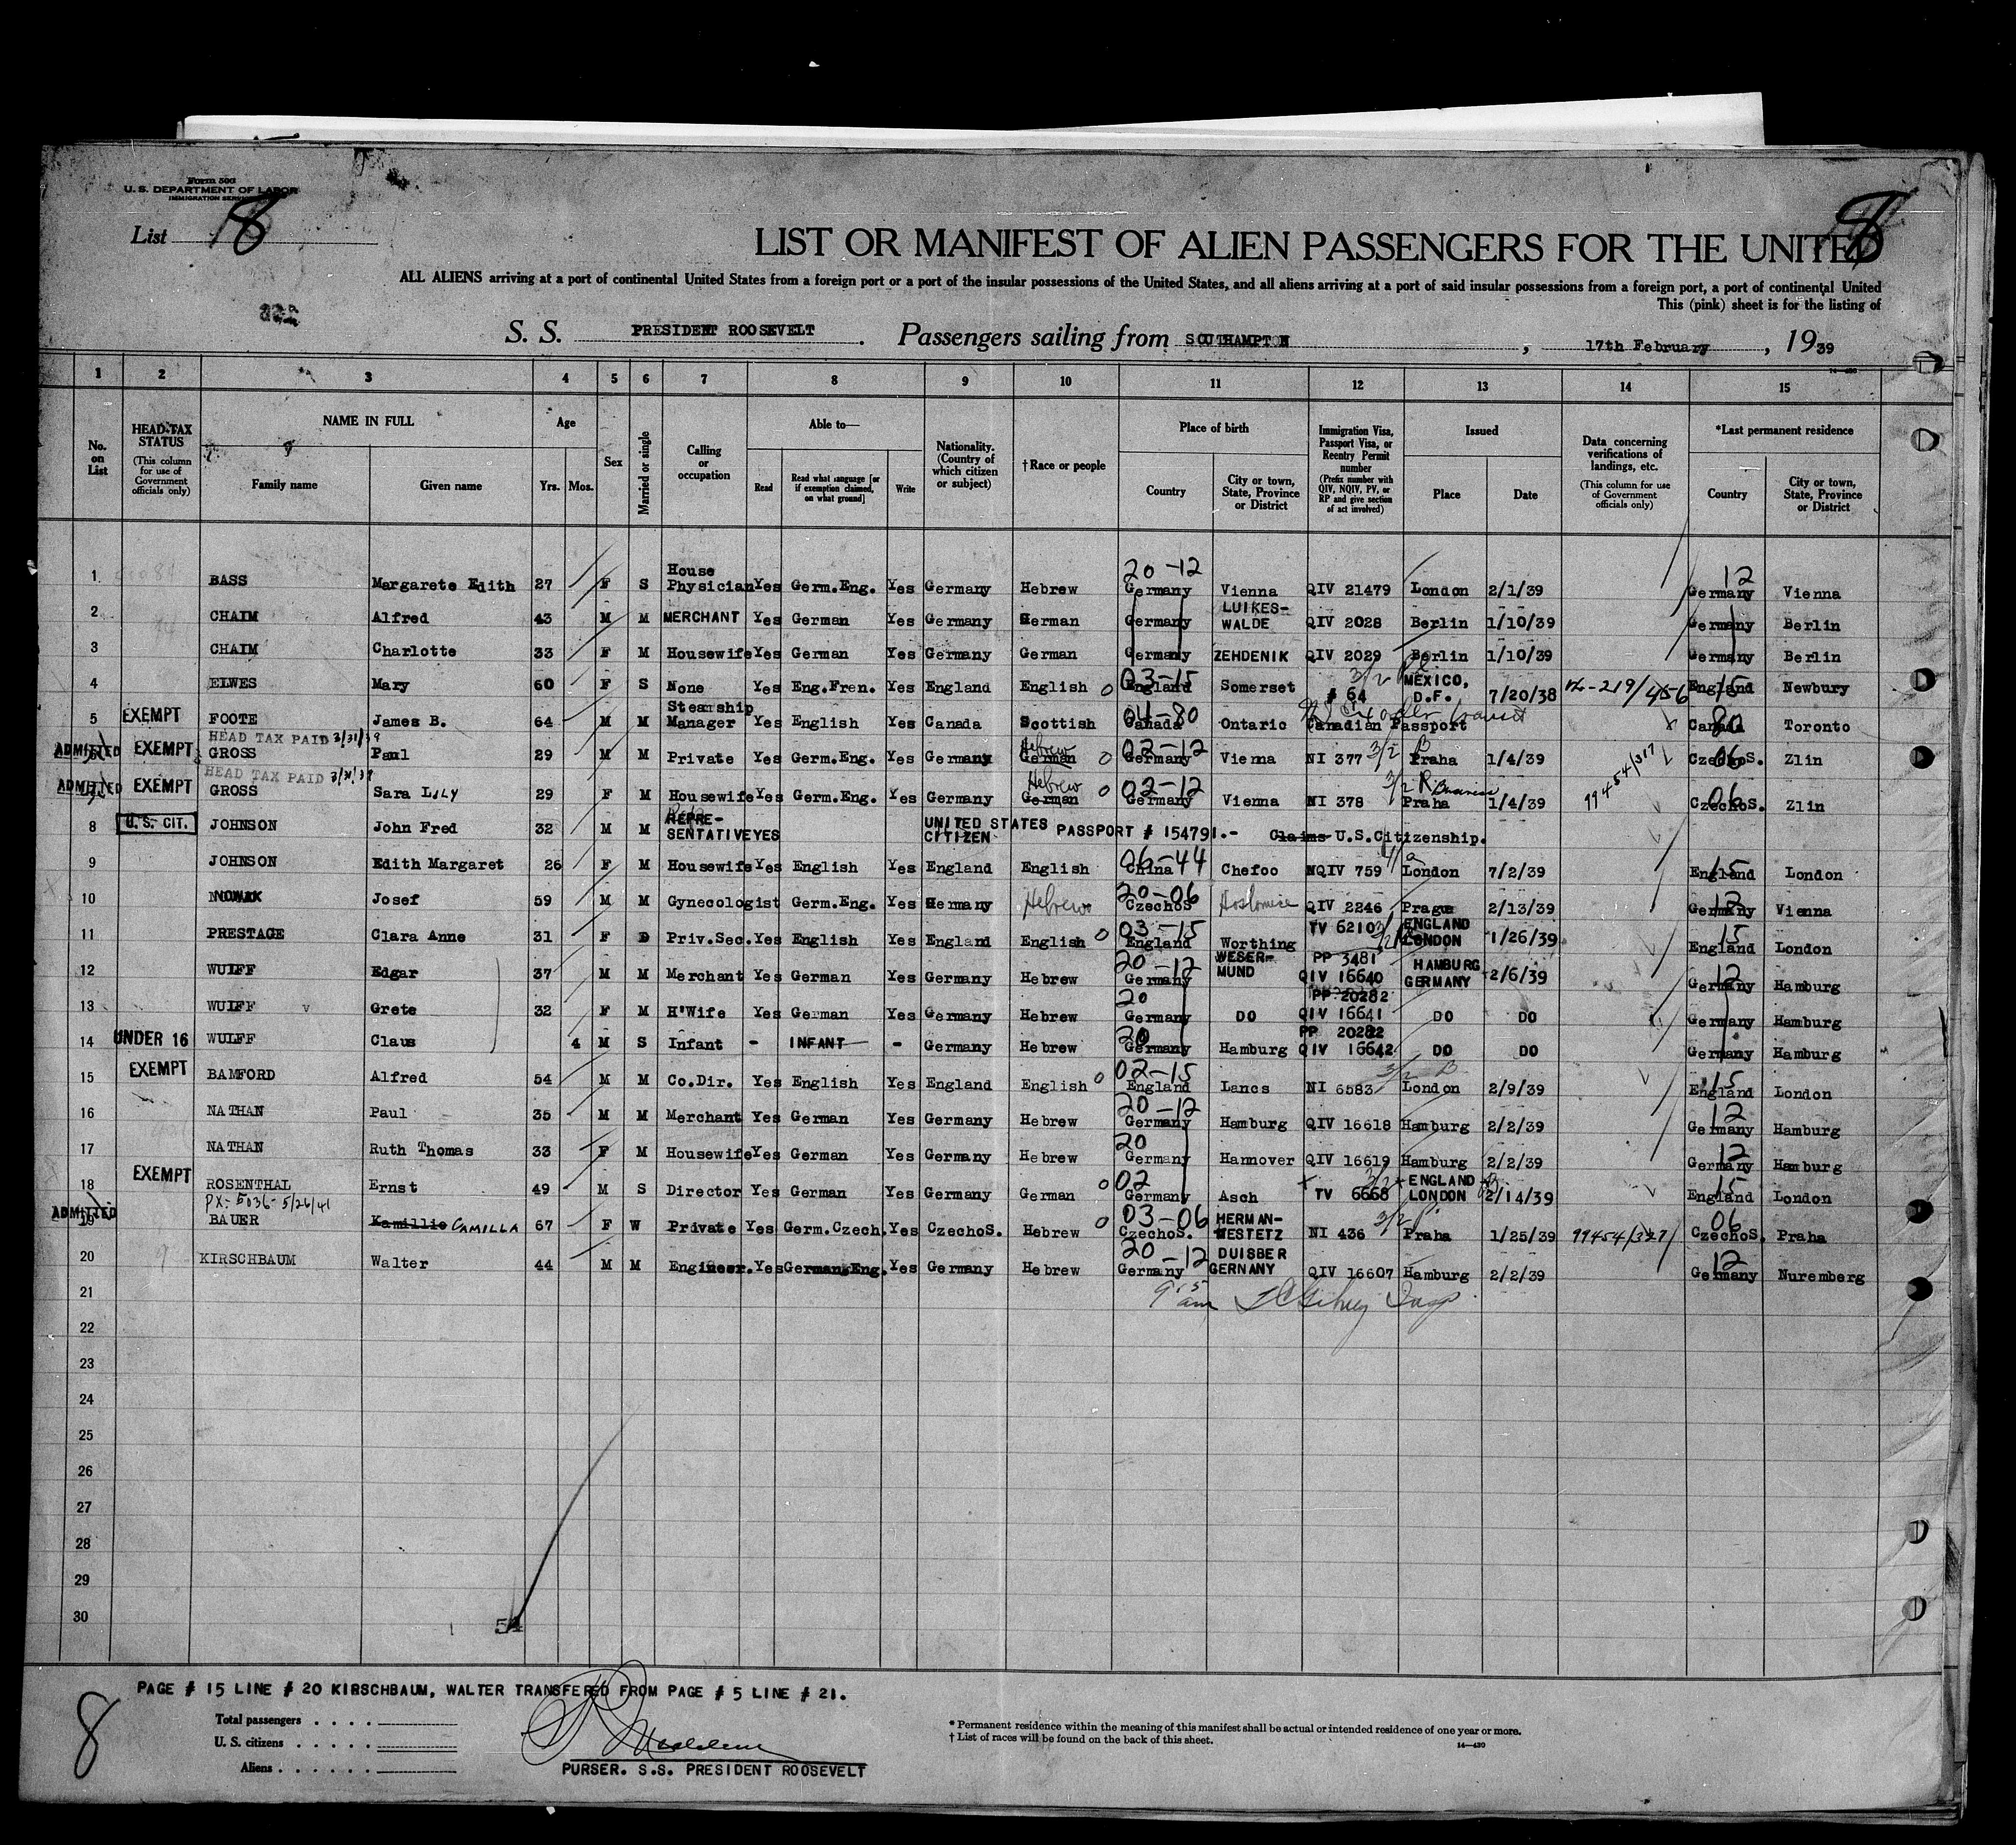 Form 500
U. S. DEPARTMENT OF LABOR
IMMIGRATION SERVICE
List 8
8
LIST OR MANIFEST OF ALIEN PASSENGERS FOR THE UNITED
ALL ALIENS arriving at a port of continental United States from a foreign port or a port of the insular possessions of the United States, and all aliens arriving at a port of said insular possessions from a foreign port, a port of continental United
This (pink) sheet is for the listing of
S. S. PRESIDENT ROOSEVELT. Passengers sailing from SOUTHAMPTON, 17th February, 1939
1 2 3 4 5 6 7 8 9 10 11 12 13 14 15
No. on List
HEAD-TAX STATUS (This column for use of Government officials only)
NAME IN FULL Family name Given name
Age Yrs. Mos.
Sex
Married or single
Calling or occupation
Able to— Read Read what language [or if exemption claimed, on what ground] Write
Nationality. (Country of which citizen or subject)
†Race or people
Place of birth Country City or town, State, Province or District
Immigration Visa, Passport Visa, or Reentry Permit number (Prefix number with QIV, NQIV, PV, or RP and give section of act involved)
Issued Place Date
Data concerning verifications of landings, etc. (This column for use of Government officials only)
*Last permanent residence Country City or town, State, Province or District
1 BASS Margarete Edith 27 F S House Physician Yes Germ.Eng. Yes Germany Hebrew 20-12 Germany Vienna QIV 21479 London 2/1/39 12 Germany Vienna
2 CHAIM Alfred 43 M M MERCHANT Yes German Yes Germany German Germany LUIKES-WALDE QIV 2028 Berlin 1/10/39 Germany Berlin
3 CHAIM Charlotte 33 F M Housewife Yes German Yes Germany German Germany ZEHDENIK QIV 2029 Berlin 1/10/39 Germany Berlin
4 ELWES Mary 60 F S None Yes Eng.Fren. Yes England English 03-15 England Somerset # 64 3/2 MEXICO, D.F. 7/20/38 219/456 15 England Newbury
5 EXEMPT FOOTE James B. 64 M M Steamship Manager Yes English Yes Canada Scottish 04-80 Canada Ontario Canadian Passport transit 80 Canada Toronto
HEAD TAX PAID 3/31/39
ADMITTED 6 EXEMPT GROSS Paul 29 M M Private Yes Germ.Eng. Yes Germany Hebrew German 02-12 Germany Vienna NI 377 3/2 B Praha 1/4/39 06 CzechoS. Zlin
HEAD TAX PAID 3/31/39
ADMITTED 7 EXEMPT GROSS Sara LILY 29 F M Housewife Yes Germ.Eng. Yes Germany Hebrew German 02-12 Germany Vienna NI 378 3/2 Business Praha 1/4/39 99454/317 06 CzechoS. Zlin
8 U.S. CIT. JOHNSON John Fred 32 M M REPRE-SENTATIVE YES UNITED STATES CITIZEN PASSPORT # 154791.- Claims U.S.Citizenship.
9 JOHNSON Edith Margaret 26 F M Housewife Yes English Yes England English 06-44 China Chefoo NQIV 759 4/a London 7/2/39 15 England London
10 NOWAK Josef 59 M M Gynecologist Germ.Eng. Yes Germany Hebrew 20-06 CzechoS Hostomice QIV 2246 Prague 2/13/39 12 Germany Vienna
11 PRESTAGE Clara Anne 31 F D Priv.Sec. Yes English Yes England English 03-15 England Worthing TV 6210 3/2 ENGLAND LONDON 1/26/39 15 England London
12 WULFF Edgar 37 M M Merchant Yes German Yes Germany Hebrew 20-12 Germany WESER-MUND PP 3481 QIV 16640 HAMBURG GERMANY 2/6/39 12 Germany Hamburg
13 WULFF Grete 32 F M H'Wife Yes German Yes Germany Hebrew 20 Germany DO PP 20282 QIV 16641 DO DO Germany Hamburg
14 UNDER 16 WULFF Claus 4 M S Infant - INFANT - Germany Hebrew 20 Germany Hamburg PP 20282 QIV 16642 DO DO Germany Hamburg
15 EXEMPT BAMFORD Alfred 54 M M Co.Dir. Yes English Yes England English 02-15 England Lancs NI 6583 3/2 B London 2/9/39 15 England London
16 NATHAN Paul 35 M M Merchant Yes German Yes Germany Hebrew 20-12 Germany Hamburg QIV 16618 Hamburg 2/2/39 12 Germany Hamburg
17 NATHAN Ruth Thomas 33 F M Housewife Yes German Yes Germany Hebrew 20 Germany Hannover QIV 16619 Hamburg 2/2/39 12 Germany Hamburg
18 EXEMPT ROSENTHAL Ernst 49 M S Director Yes German Yes Germany German 02 Germany Asch TV 6668 3/2 ENGLAND LONDON 2/14/39 15 England London
PX-5036-5/26/41
ADMITTED 19 BAUER Kamillie CAMILLA 67 F W Private Yes Germ.Czech. Yes CzechoS. Hebrew 03-06 CzechoS. HERMAN-MESTETZ NI 436 3/2 P. Praha 1/25/39 99454/327 06 CzechoS. Praha
20 KIRSCHBAUM Walter 44 M M Engineer. Yes German&Eng. Yes Germany Hebrew 20-12 Germany DUISBER GERNANY QIV 16607 Hamburg 2/2/39 12 Germany Nuremberg
21 9:15 am
22
23
24
25
26
27
28
29
30
54
PAGE # 15 LINE # 20 KIRSCHBAUM, WALTER TRANSFERED FROM PAGE # 5 LINE # 21.
8
Total passengers
U. S. citizens
Aliens
PURSER. S.S. PRESIDENT ROOSEVELT
* Permanent residence within the meaning of this manifest shall be actual or intended residence of one year or more.
† List of races will be found on the back of this sheet.
14—430